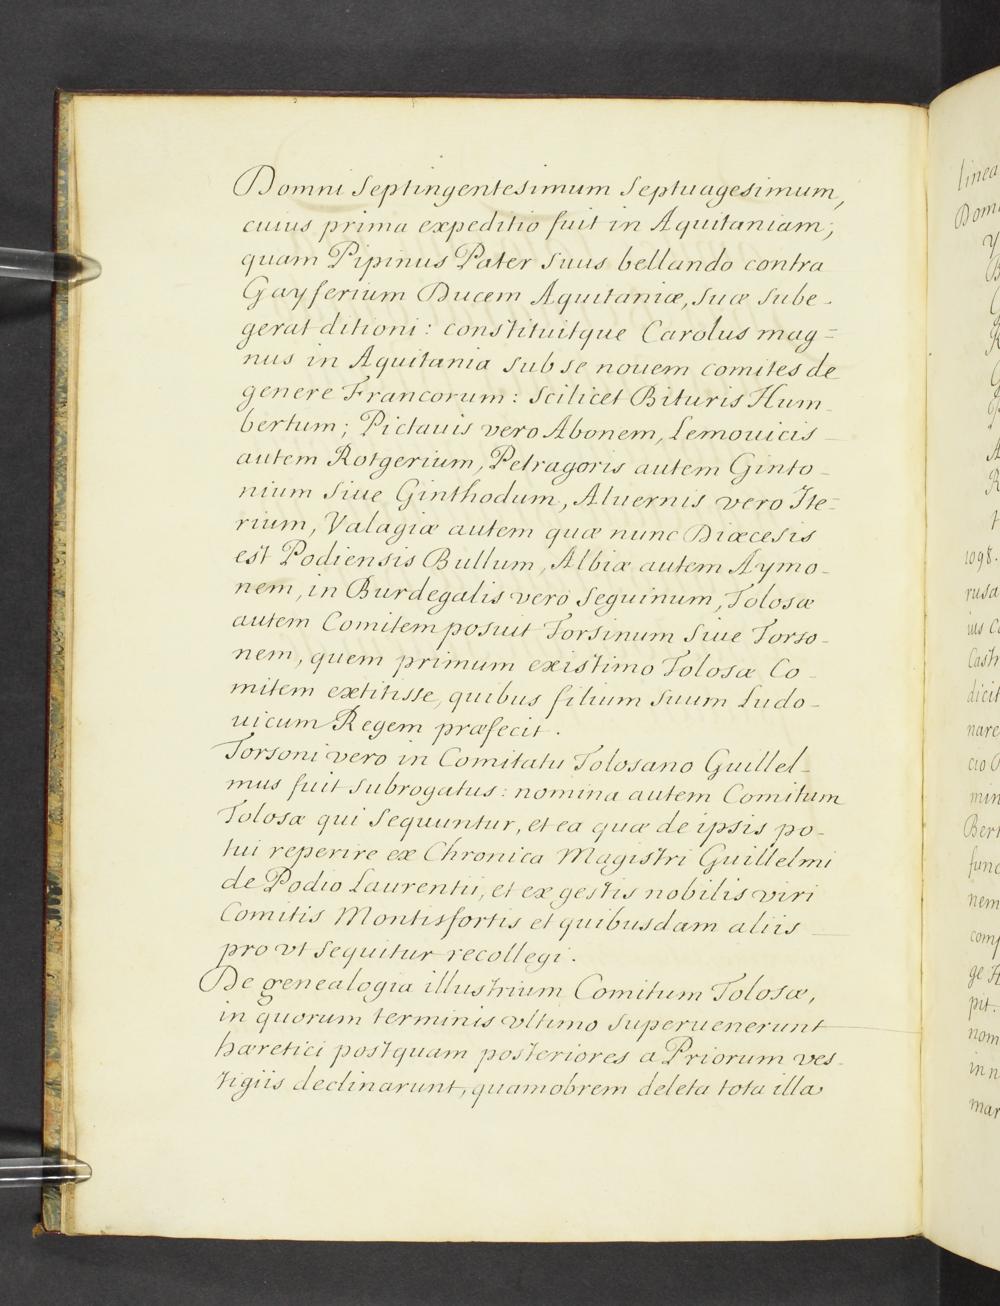 Domni Septingentesimum Septuagesimum,
cuius prima expeditio fuit in Aquitaniam;
quam Pipinus Pater Suus bellando contra
Gayferium Ducem Aquitaniæ, suæ sube-
gerat ditioni: constituitque Carolus mag=
nus in Aquitania sub se nouem comites de
genere Francorum: Scilicet Bituris Hum-
bertum; Pictauis vero Abonem, Lemouicis
autem Rotgerium, Petragoris autem Ginto-
nium Siue Ginthodum, Aluernis vero Ite=
rium, Valagiæ autem quæ nunc Diæcesis
est Podiensis Bullum, Albiæ autem Aymo-
nem, in Burdegalis vero Seguinum, Tolosæ
autem Comitem posuit Torsinum Siue Torso-
nem, quem primum existimo Tolosæ Co-
mitem extitisse, quibus filium suum Ludo-
uicum Regem præfecit.
Torsoni vero in Comitatu Tolosano Guillel-
mus fuit subrogatus: nomina autem Comitum
Tolosæ qui Sequuntur, et ea quæ de ipsis po-
tui reperire ex Chronica Magistri Guillelmi
de Podio Laurentii, et ex gestis nobilis viri
Comitis Montisfortis et quibusdam aliis
pro vt Sequitur recollegi.
De genealogia illustrium Comitum Tolosæ,
in quorum terminis vltimo superuenerunt
hæretici postquam posteriores a Priorum ves-
tigiis declinarunt, quamobrem deleta tota illa
linea
1098.